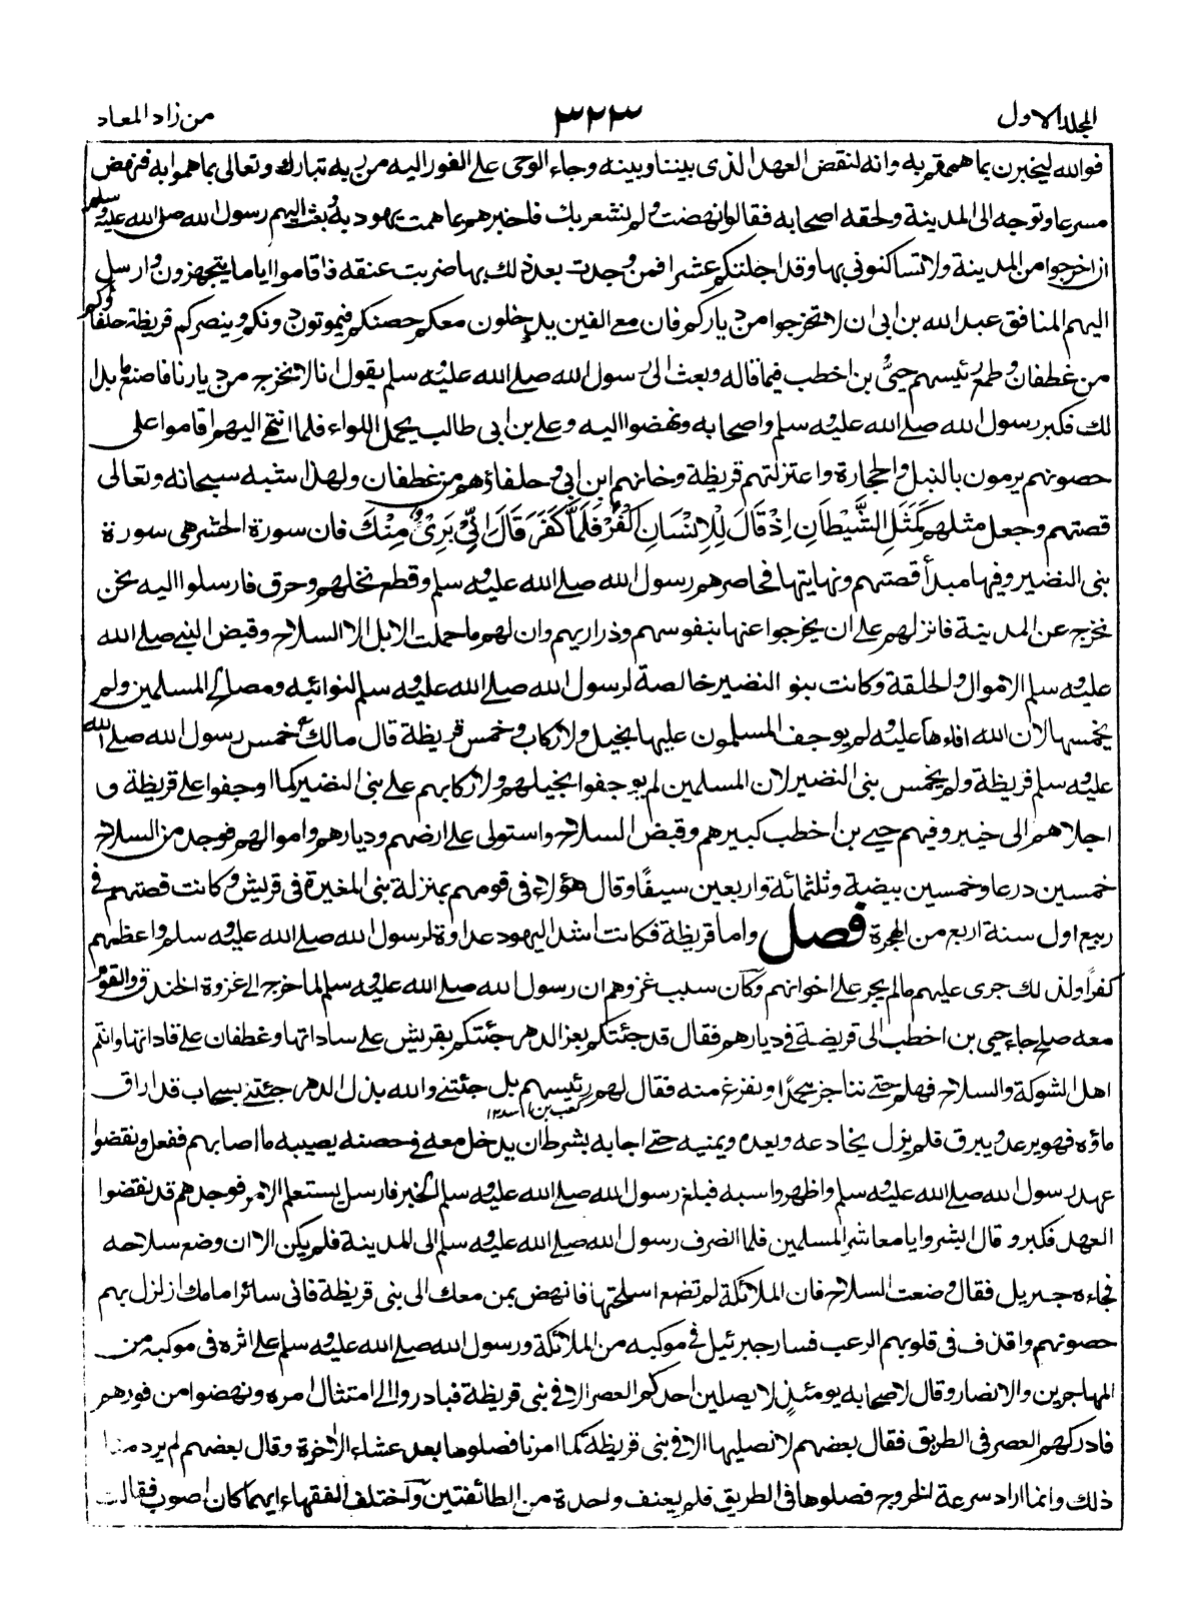 المجلد الاول
٣٢٣
من زاد المعاد
فوالله ليخبرن بما هممتم به وانه لنقض العهد الذى بيننا وبينه وجاء الوحى على الفور اليه من ربه تبارك وتعالى بما هموا به فنهض
مسرعا وتوجه الى المدينة ولحقه اصحابه فقالوا نهضت ولم نشعر بك فاخبرهم بما همت يهود به وبعث اليهم رسول الله صلى الله عليه وسلم
ان اخرجوا من المدينة ولا تساكنونى بها وقد اجلتكم عشرا فمن وجدت بعد ذلك بها ضربت عنقه فاقاموا اياما يتجهزون وارسل
اليهم المنافق عبد الله بن ابى ان لا تخرجوا من دياركم فان مع الفين يدخلون معكم حصنكم فيموتون دونكم وينصركم قريظة وحلفاؤكم
من غطفان وطمع رئيسهم حيىّ بن اخطب فيما قاله وبعث الى رسول الله صلے الله عليه سلم يقول انا لا نخرج من ديارنا فاصنع ما بدا
لك فكبر رسول الله صلے الله عليه سلم واصحابه ونهضوا اليه وعلى بن ابى طالب يحمل اللواء فلما انتهى اليهم اقاموا على
حصونهم يرمون بالنبل والحجارة واعتزلتهم قريظة وخانهم ابن ابى وحلفاؤهم من غطفان ولهذا شبه سبحانه وتعالى
قصتهم وجعل مثلهم كَمَثَلِ الشَّيْطَانِ اِذْ قَالَ لِلْاِنْسَانِ اكْفُرْ فَلَمَّا كَفَرَ قَالَ اِنِّىْ بَرِىْءٌ مِنْكَ فان سورة الحشر هى سورة
بنى النضير وفيها مبدأ قصتهم ونهايتها فحاصرهم رسول الله صلے الله عليه سلم وقطع نخلهم وحرق فارسلوا اليه نحن
نخرج عن المدينة فانزلهم على ان يخرجوا عنها بنفوسهم وذراريهم وان لهم ما حملت الابل الا السلاح وقبض النبى صلے الله
عليه سلم الاموال والحلقة وكانت بنو النضير خالصة لرسول الله صلے الله عليه سلم لنوائبه ومصالح المسلمين ولم
يخمسها لان الله افاءها عليه لم يوجف المسلمون عليها بخيل ولا ركاب وخمس قريظة قال مالك خمس رسول الله صلے الله
عليه سلم قريظة ولم يخمس بنى النضير لان المسلمين لم يوجفوا بخيلهم ولا ركابهم على بنى النضير كما اوجفوا على قريظة و
اجلاهم الى خيبر وفيهم حيى بن اخطب كبيرهم وقبض السلاح واستولى على ارضهم وديارهم واموالهم فوجد من السلاح
خمسين درعا وخمسين بيضة وثلثمائة واربعين سيفًا وقال هؤلاء فى قومهم بمنزلة بنى المغيرة فى قريش وكانت قصتهم فى
ربيع اول سنة اربع من الهجرة فصل واما قريظة فكانت اشد اليهود عداوة لرسول الله صلے الله عليه سلم واعظهم
كفرًا ولذلك جرى عليهم مالم يجر على اخوانهم وكان سبب غزوهم ان رسول الله صلے الله عليه سلم لما خرج الى غزوة الخندق والقوم
معه صلح جاء حيى بن اخطب الى قريضة فى ديارهم فقال قد جئتكم بعز الدهر جئتكم بقريش على ساداتها وغطفان على قاداتها وانتم
اهل الشوكة والسلاح فهلم حتى نناجز محمدًا ونفرغ منه فقال لهم رئيسهم بل جئتنى والله بذل الدهر جئتنى بسحاب قد اراق
كعب بن اسد ١٢
ماؤه فهو يرعد ويبرق فلم يزل يخادعه ويعده ويمنيه حتے اجابه بشرط ان يدخل معه فى حصنه يصيبه ما اصابهم ففعل ونقضوا
عهد رسول الله صلے الله عليه سلم واظهروا سبه فبلغ رسول الله صلے الله عليه سلم الخبر فارسل يستعلم الامر فوجدهم قد نقضوا
العهد فكبر وقال ابشروا يا معاشر المسلمين فلما انصرف رسول الله صلے الله عليه سلم الى المدينة فلم يكن الا ان وضع سلاحه
فجاءه جبريل فقال وضعت السلاح فان الملائكة لم تضع اسلحتها فانهض بمن معك الى بنى قريظة فانى سائر امامك ازلزل بهم
حصونهم واقذف فى قلوبهم الرعب فسار جبرئيل فى موكبه من الملائكة ورسول الله صلے الله عليه سلم على اثره فى موكبه من
المهاجرين والانصار وقال لاصحابه يومئذٍ لا يصلين احدكم العصر الا فى بنى قريظة فبادروا الى امتثال امره ونهضوا من فورهم
فادركهم العصر فى الطريق فقال بعضهم لا نصليها الا فى بنى قريظة كما امرنا فصلوها بعد عشاء الاخرة وقال بعضهم لم يرد منا
ذلك وانما اراد سرعة الخروج فصلوها فى الطريق فلم يعنف واحدة من الطائفتين واختلف الفقهاء ايهما كان اصوب فقالت